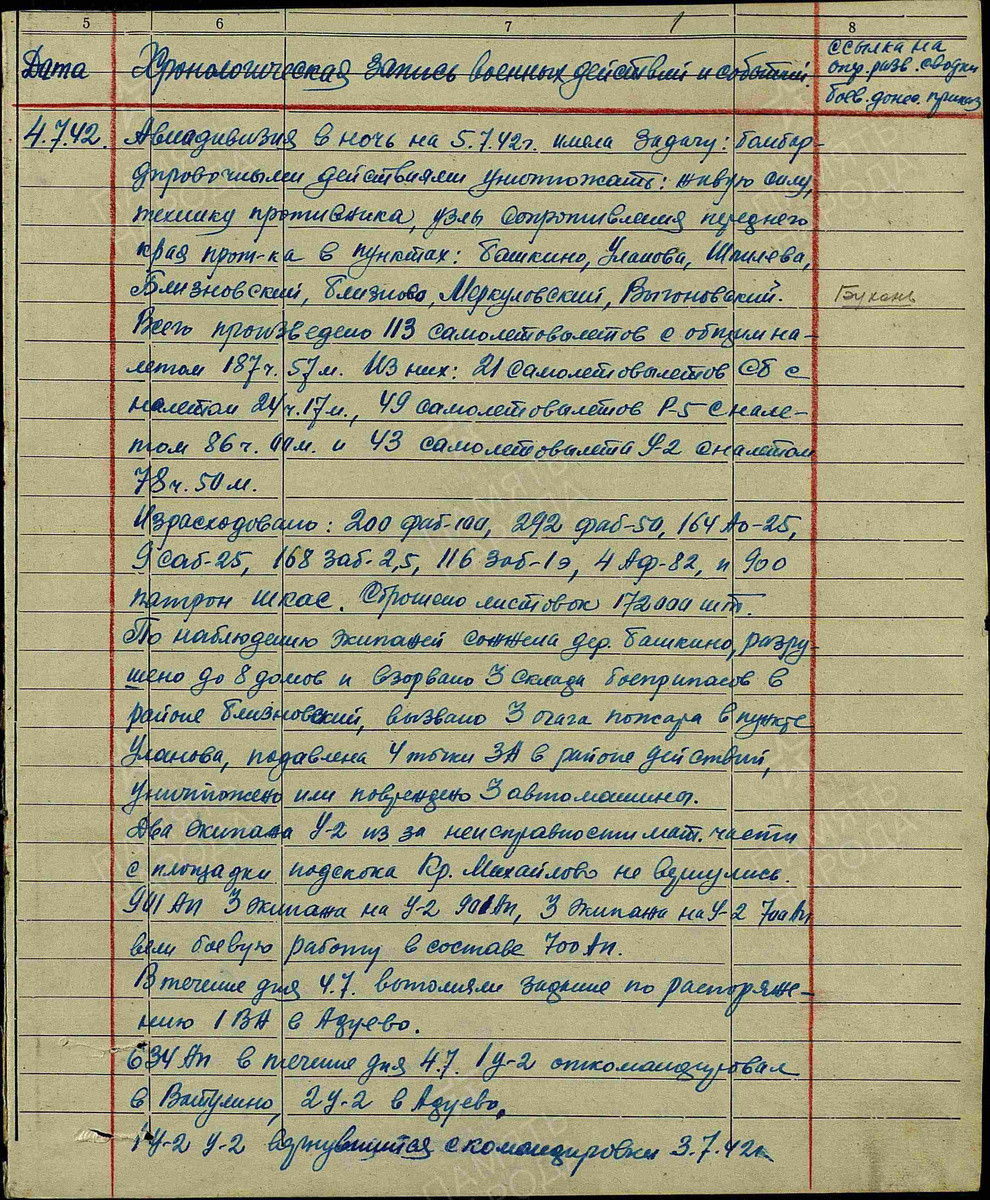 5 6 7 1 8
Дата Хронологическая запись военных действий и событий.
ссылка на
опр. разв. сводки
боев. донес. приказ
4.7.42. Авиадивизия в ночь на 5.7.42г. имела задачу: бомбар-
дировочными действиями уничтожать: живую силу,
технику противника, узлы сопротивления переднего
края прот-ка в пунктах: Башкино, Уланова, Шпилева,
Близновский, Близново, Меркуловский, Выгоновский. Букань
Всего произведено 113 самолетовылетов с общим на-
летом 187ч. 57м. Из них: 21 самолетовылетов СБ с
налетом 24ч.17м., 49 самолетовылетов Р-5 с нале-
том 86ч. 00м. и 43 самолетовылета У-2 с налетом
78ч. 50м.
Израсходовано: 200 фаб-100, 292 фаб-50, 164 Ао-25,
9 саб-25, 168 Заб-2,5, 116 Заб-1э, 4 Аф-82, и 900
патрон шкас. Сброшено листовок 172000 шт.
По наблюдению экипажей сожжена дер. Башкино, разру-
шено до 8 домов и взорвано 3 склада боеприпасов в
районе Близновский, вызвано 3 очага пожара в пункте
Уланова, подавлена 4 точки ЗА в районе действий,
уничтожено или повреждено 3 автомашины.
Два экипажа У-2 из за неисправности мат. части
с площадки подскока Кр. Михайлово не вернулись.
901 Ап 3 экипажа на У-2 901 Ап, 3 экипажа на У-2 700 Ап
вели боевую работу в составе 700 Ап.
В течение дня 4.7. выполняли задание по распоряже-
нию 1 ВА в Адуево.
634 Ап в течение дня 4.7. 1 У-2 откомандировал
в Ватулино, 2 У-2 в Адуево,
1 У-2 У-2 с командировки 3.7.42г.